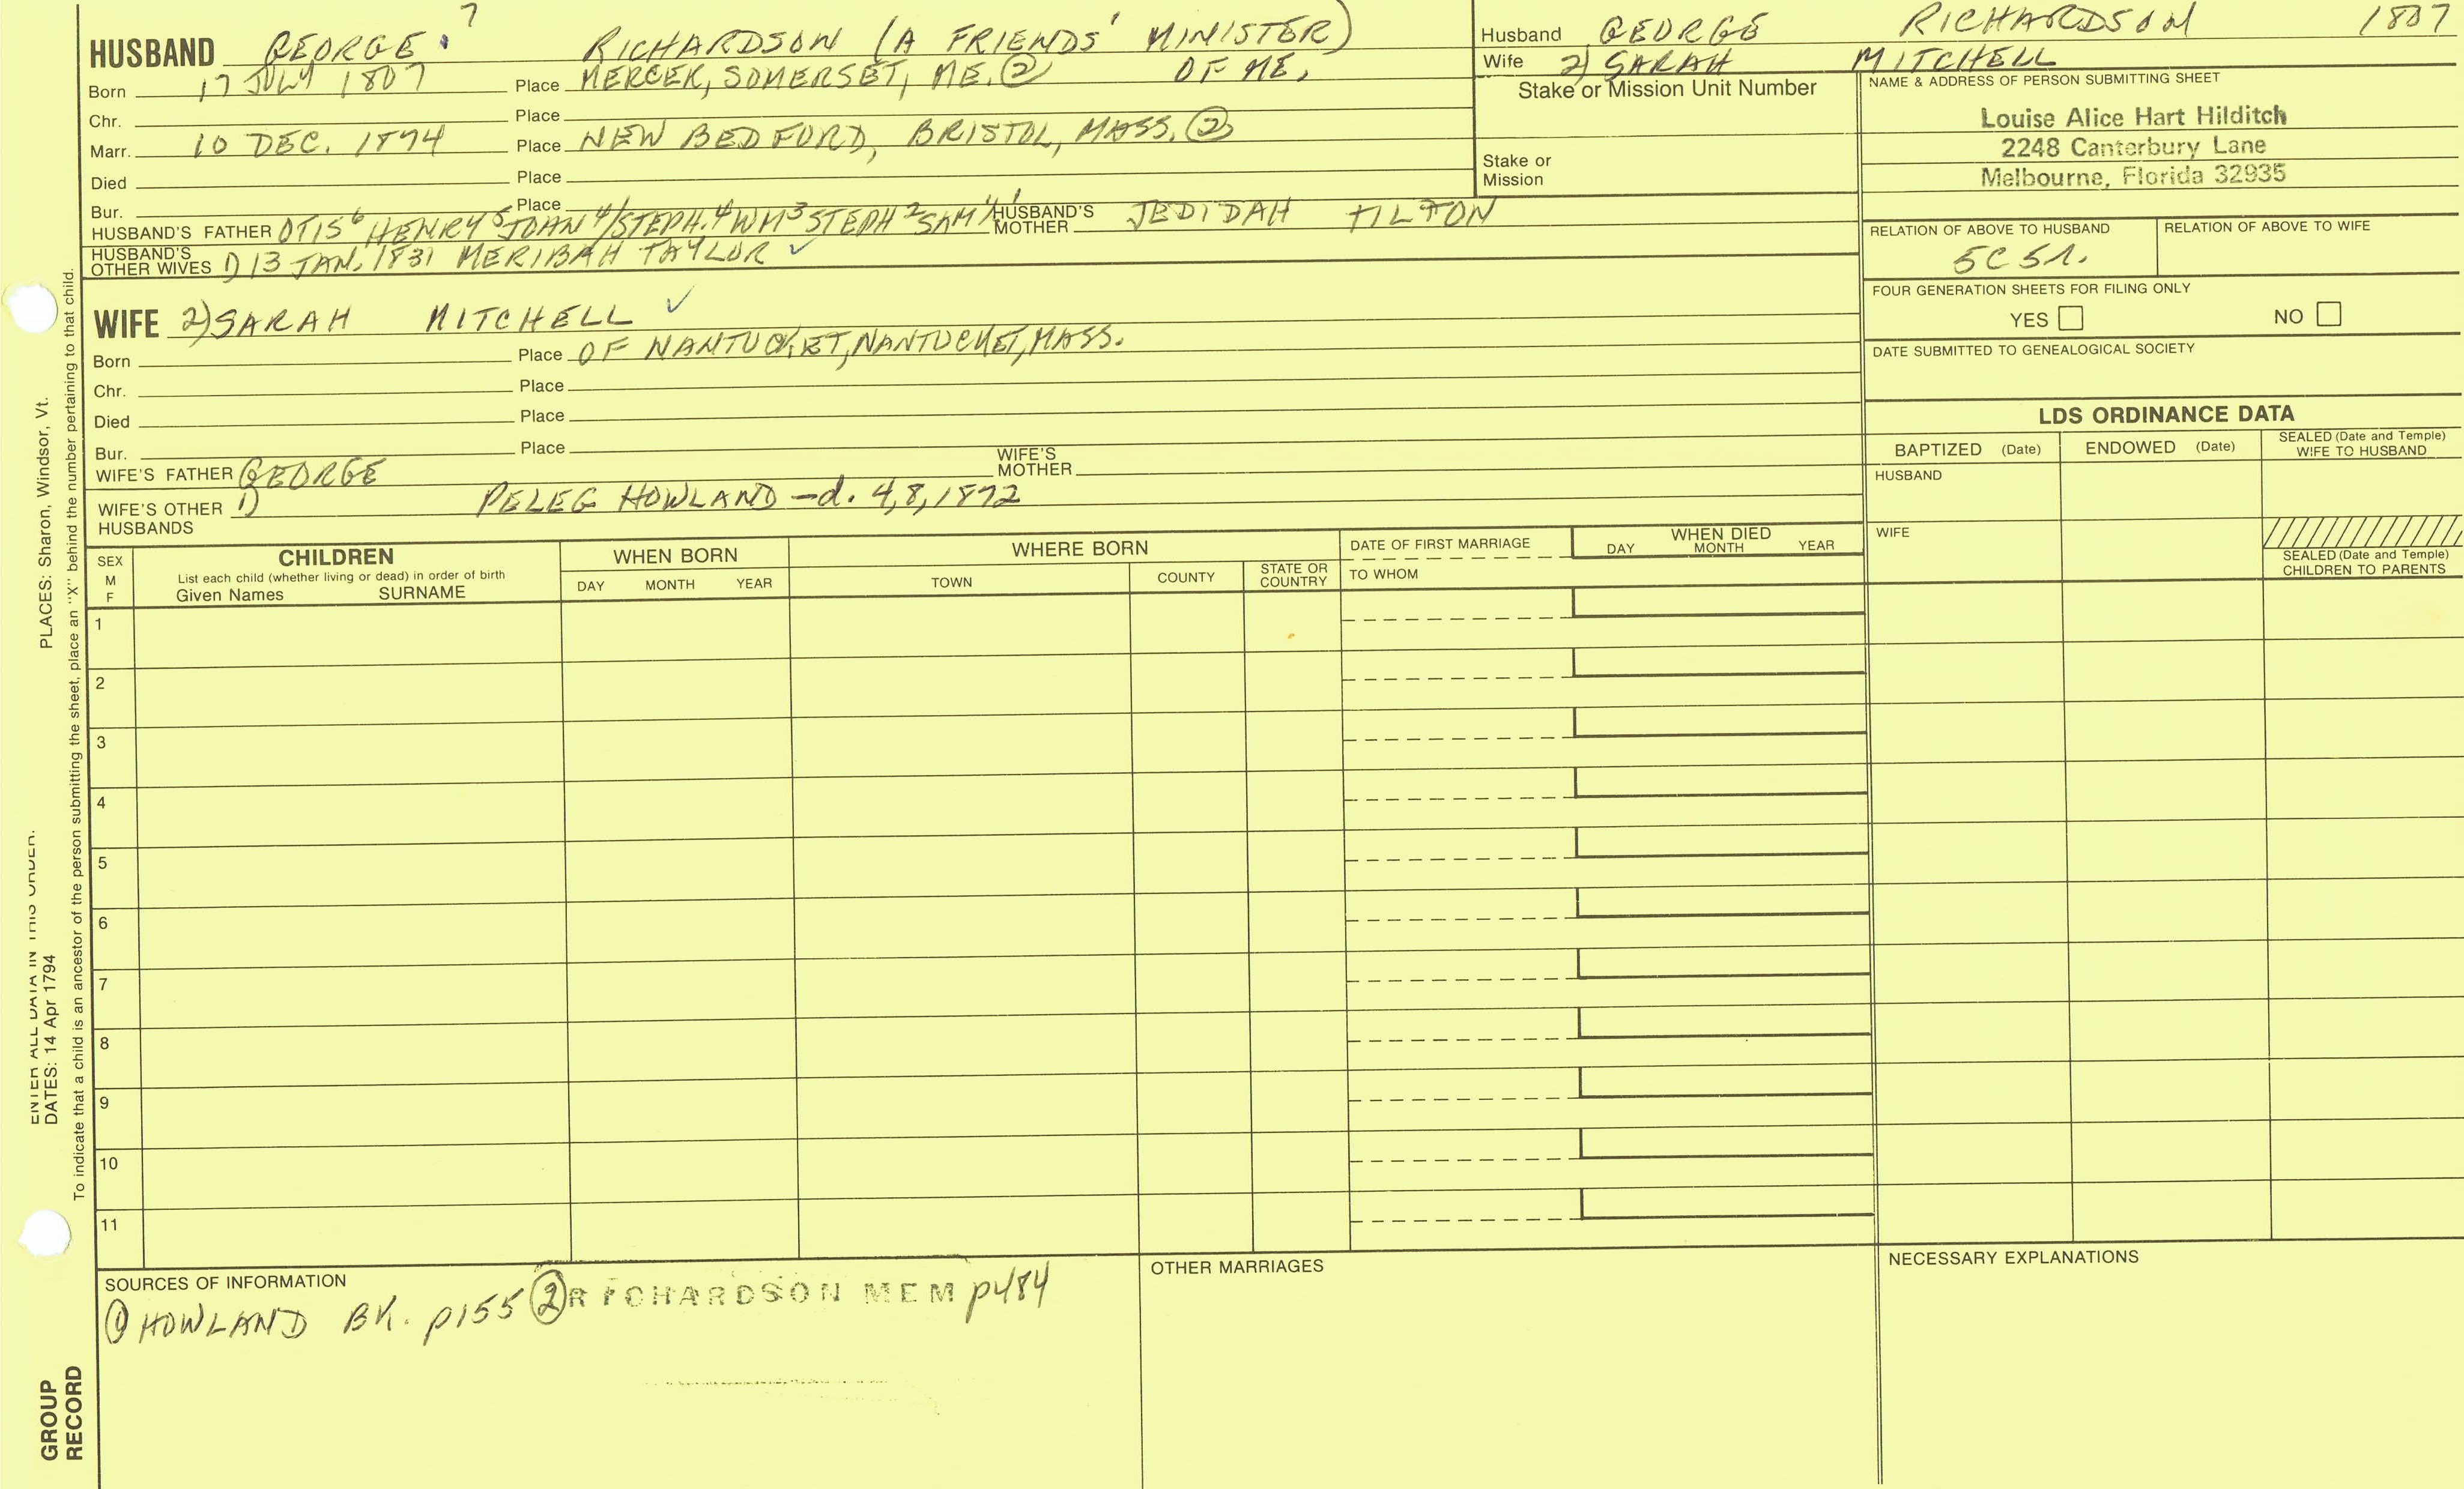 HUSBAND GEORGE 7 RICHARDSON (A FRIENDS' MINISTER)
Born 17 JULY 1807 Place MERCER, SOMERSET, ME. ② OF ME.
Chr. Place
Marr. 10 DEC. 1874 Place NEW BEDFORD, BRISTOL, MASS. ②
Died Place
Bur. Place
HUSBAND'S FATHER OTIS 6 HENRY 5 JOHN 4/STEPH. 4 WM 3 STEPH 2 SAM'L 1 HUSBAND'S MOTHER JEDIDAH TILTON
HUSBAND'S OTHER WIVES 1) 13 JAN. 1831 MERIBAH TAYLOR ✓
WIFE 2) SARAH MITCHELL ✓
Born Place OF NANTUCKET, NANTUCKET, MASS.
Chr. Place
Died Place
Bur. Place
WIFE'S FATHER GEORGE WIFE'S MOTHER
WIFE'S OTHER HUSBANDS 1) PELEG HOWLAND - d. 4, 8, 1872
Husband GEORGE RICHARDSON 1807
Wife 2) SARAH MITCHELL
Stake or Mission Unit Number
Stake or
Mission
NAME & ADDRESS OF PERSON SUBMITTING SHEET
Louise Alice Hart Hilditch
2248 Canterbury Lane
Melbourne, Florida 32935
RELATION OF ABOVE TO HUSBAND RELATION OF ABOVE TO WIFE
5C 5r.
FOUR GENERATION SHEETS FOR FILING ONLY
YES NO
DATE SUBMITTED TO GENEALOGICAL SOCIETY
LDS ORDINANCE DATA
BAPTIZED (Date) ENDOWED (Date) SEALED (Date and Temple) WIFE TO HUSBAND
HUSBAND
WIFE
SEALED (Date and Temple)
CHILDREN TO PARENTS
SEX
M
F
CHILDREN
List each child (whether living or dead) in order of birth
Given Names SURNAME
WHEN BORN
DAY MONTH YEAR
WHERE BORN
TOWN COUNTY STATE OR COUNTRY
DATE OF FIRST MARRIAGE
TO WHOM
WHEN DIED
DAY MONTH YEAR
1
2
3
4
5
6
7
8
9
10
11
SOURCES OF INFORMATION
① HOWLAND BK. p155 ② RICHARDSON MEM p484
OTHER MARRIAGES
NECESSARY EXPLANATIONS
ENTER ALL DATA IN THIS ORDER.
DATES: 14 Apr 1794
PLACES: Sharon, Windsor, Vt.
To indicate that a child is an ancestor of the person submitting the sheet, place an "X" behind the number pertaining to that child.
GROUP
RECORD